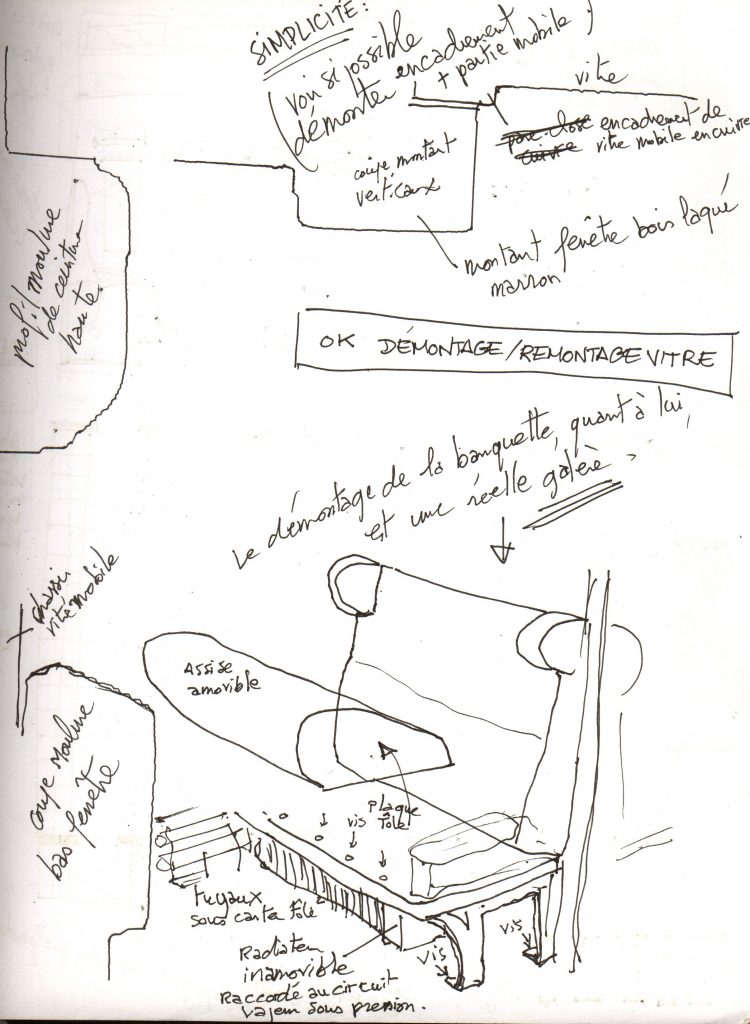 SIMPLICITÉ :
voir si possible
démonter encadrement
+ partie mobile
vitre
encadrement de
vitre mobile en cuivre
coupe montant
verticaux
montant fenêtre bois laqué
marron
profil moulure
de ceinture
haute
OK DÉMONTAGE/REMONTAGE VITRE
Le démontage de la banquette, quant à lui,
est une réelle galère
chassis
vitre mobile
Assise
amovible
coupe moulure
bas fenêtre
plaque
tôle
vis
tuyaux
sous carter tôle
Radiateur
inamovible
Raccordé au circuit
vapeur sous pression.
vis
vis